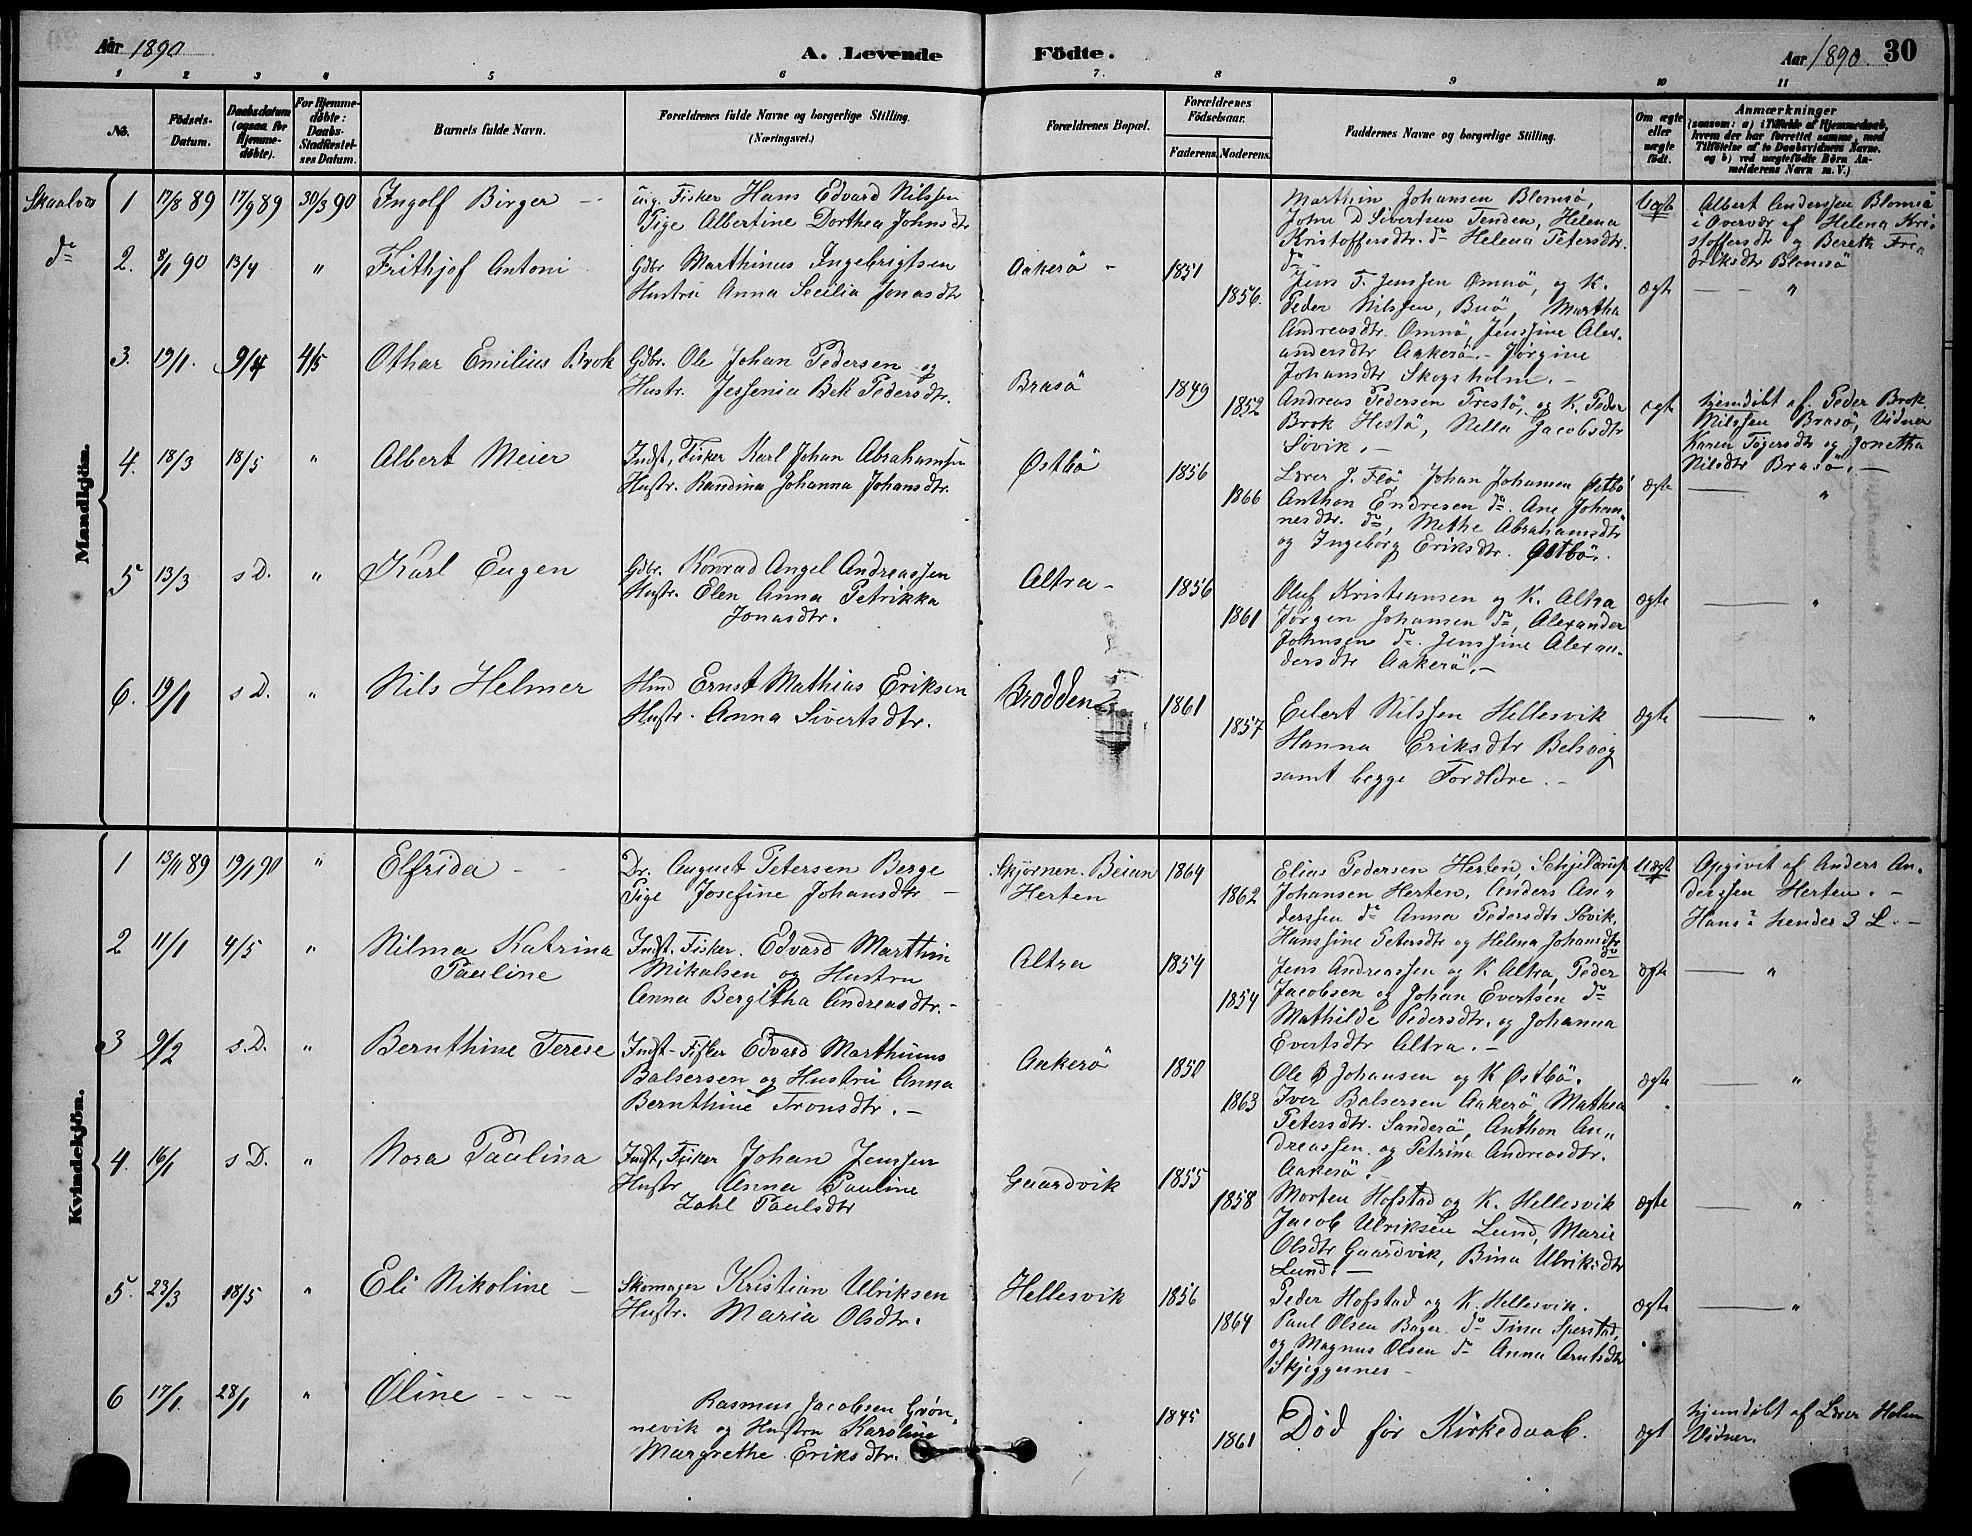 Aar 1890
A. Levende Födte.
Aar 1890.
30
1 2 3 4 5 6 7. 8 9 10 11
No.
Födsels-
Datum.
Daabsdatum
(ogsaa for
Hjemme-
döbte).
For Hjemme-
döbte:
Daabs-
Stadfæstel-
ses Datum.
Barnets fulde Navn.
Forældrenes fulde Navne og borgerlige Stilling.
(Næringsvei.)
Forældrenes Bopæl.
Forældrenes
Födselsaar.
Faderens. Moderens.
Faddernes Navne og borgerlige Stilling.
Om ægte
eller
uægte
født.
Anmærkninger
(saasom: a) i Tilfælde af Hjemmedaab,
hvem der har forrettet samme, med
Tilføielse af to Daabsvidners Navne.
og b) ved uægtefødte Börn An-
melderens Navn m. V.)
Mandkjön.
1 17/8 89 17/9 89 30/3 90 Ingolf Birger
ug. Fisker Hans Edvard Nilssen
Pige Albertine Dorthea Johnsdtr
Marthin Johansen Blomsö,
John d Sivertsen Tenden, Helena
Kristoffersdtr. do Helena Petersdtr.
do
Uægte
Albert Anderssen Blomsö
i Overvær af Helena Kri-
stoffersdtr og Bereth Fre
driksdtr Blomsö
do 2. 8/1 90 13/4 " Frithjof Antoni
Gdbr Marthinus Ingebrigtsen
Hustru Anna Secilia Jonasdtr
Aakerö - 1851 1856.
Jens F. Jenssen Omnö, og K.
Peder Nilssen, Buö, Martha
Andreasdtr. Omnö, Jenssine Alex-
andersdtr Aakerö. - Jørgine
Johansdtr Skogsholm. -
ægte "
3. 19/1. 9/4 4/5 Othar Emilius Brok
Gdbr. Ole Johan Pedersen og
Hustr. Jessenia Bek Pedersdtr.
Brasö 1849 1852
Andreas Pedersen Præstö, og K. Peder
Brok Hestö, Nella Jacobsdtr
Sövik. -
ægte
hjemdöbt af Peder Brok
Nilssen Brasö, Vidner
Karen Tögersdtr og Jonetha
Nilsdtr Brasö. -
4. 18/3 18/5 " Albert Meier
Indst, Fisker Karl Johan Abrahamsen
Hustr. Randina Johanna Johansdtr.
Østbö 1856 1866
Lærer J. Flö Johan Johansen Østbö
Anthon Endresen do. Ane Johan-
nesdtr. do, Methe Abrahamsdtr
og Ingeborg Eriksdtr. Østbö.
ægte "
5 13/3 s D. " Karl Eugen
Gdbr. Konrad Angel Andreassen
Hustr. Elen Anna Petrikka
Jonasdtr.
Altra - 1856 1861
Oluf Kristiansen og K. Altra
Jørgen Johansen do, Alexander
Johnsen do. Jenssine Alexan-
dersdtr Aakerö. -
ægte "
6. 19/1 s D. " Nils Helmer
Hmd Ernst Mathias Eriksen
Hustr. Anna Sivertsdtr.
Brodden 1861 1857
Eilert Nilssen Hellesvik
Hanna Eriksdtr Belsvog
samt begge Forældre. -
ægte "
Kvindekjön.
1 13/11 89 19/1 90 " Elfrida
Dr. August Petersen Berge
Pige Josefine Johansdtr -
Skjørnen. Beian
Herten 1864 1862
Elias Pedersen Herten, Schjeldrup
Johansen Herten, Anders An"
derssen do Anna Pedersdtr Sövik,
Hanssine Petersdtr og Helena Johansdtr
do
Uægte
Opgivet af Anders An-
derssen Herten. -
Hans 2 hendes 3 L. -
2 11/1 4/5 " Nilma Katrina
Pauline
Indst. Fisker. Edvard Marthin
Mikalsen og Hustru
Anna Bergitha Andreasdtr. -
Altra 1854 1854
Jens Andreassen og K Altra, Peder
Jacobsen og Johan Evertsen do
Mathilde Pedersdtr. og Johanna
Evertsdtr Altra. -
ægte "
3 9/2 s. D. " Bernthine Terese
Indst - Fisker Edvard Marthinus
Balsersen og Hustru Anna
Bernthine Tronsdtr. -
Aakerö 1850 1863
Ole Johansen og K Østbö.
Iver Balsersen Aakerö, Mathea
Petersdtr. Sanderö, Anthon An"
dreassen og Petrina Andreasdtr.
Aakerö.
ægte "
4. 16/1 s D. " Nora Paulina
Indst, Fisker Johan Jenssen
Hustr Anna Pauline
Zahl Paulsdtr
Gaardvik 1855 1858
Morten Hofstad og K. Hellesvik
Jacob Ulriksen Lund, Marie
Olsdtr Gaardvik, Bina Ulriksdtr
Lund. -
ægte "
5. 23/3 18/5 " Eli Nikoline -
Skomager Kristian Ulriksen
Hustr. Maria Olsdtr.
Hellesvik 1856 1864
Peder Hofstad og K. Hellesvik.
Paul Olsen Bager. do Tina Sperstad,
og Magnus Olsen do Anna Arntsdtr
Skjeggernes -
ægte "
6 17/1. 28/1 " Oline - - -
Rasmus Jacobsen Grön,
nevik og Hustru Karoline
Margrethe Eriksdtr.
1845 1861
Död før Kirkedaab.
ægt
hjemdöbt af Lærer Holm
Vidner.